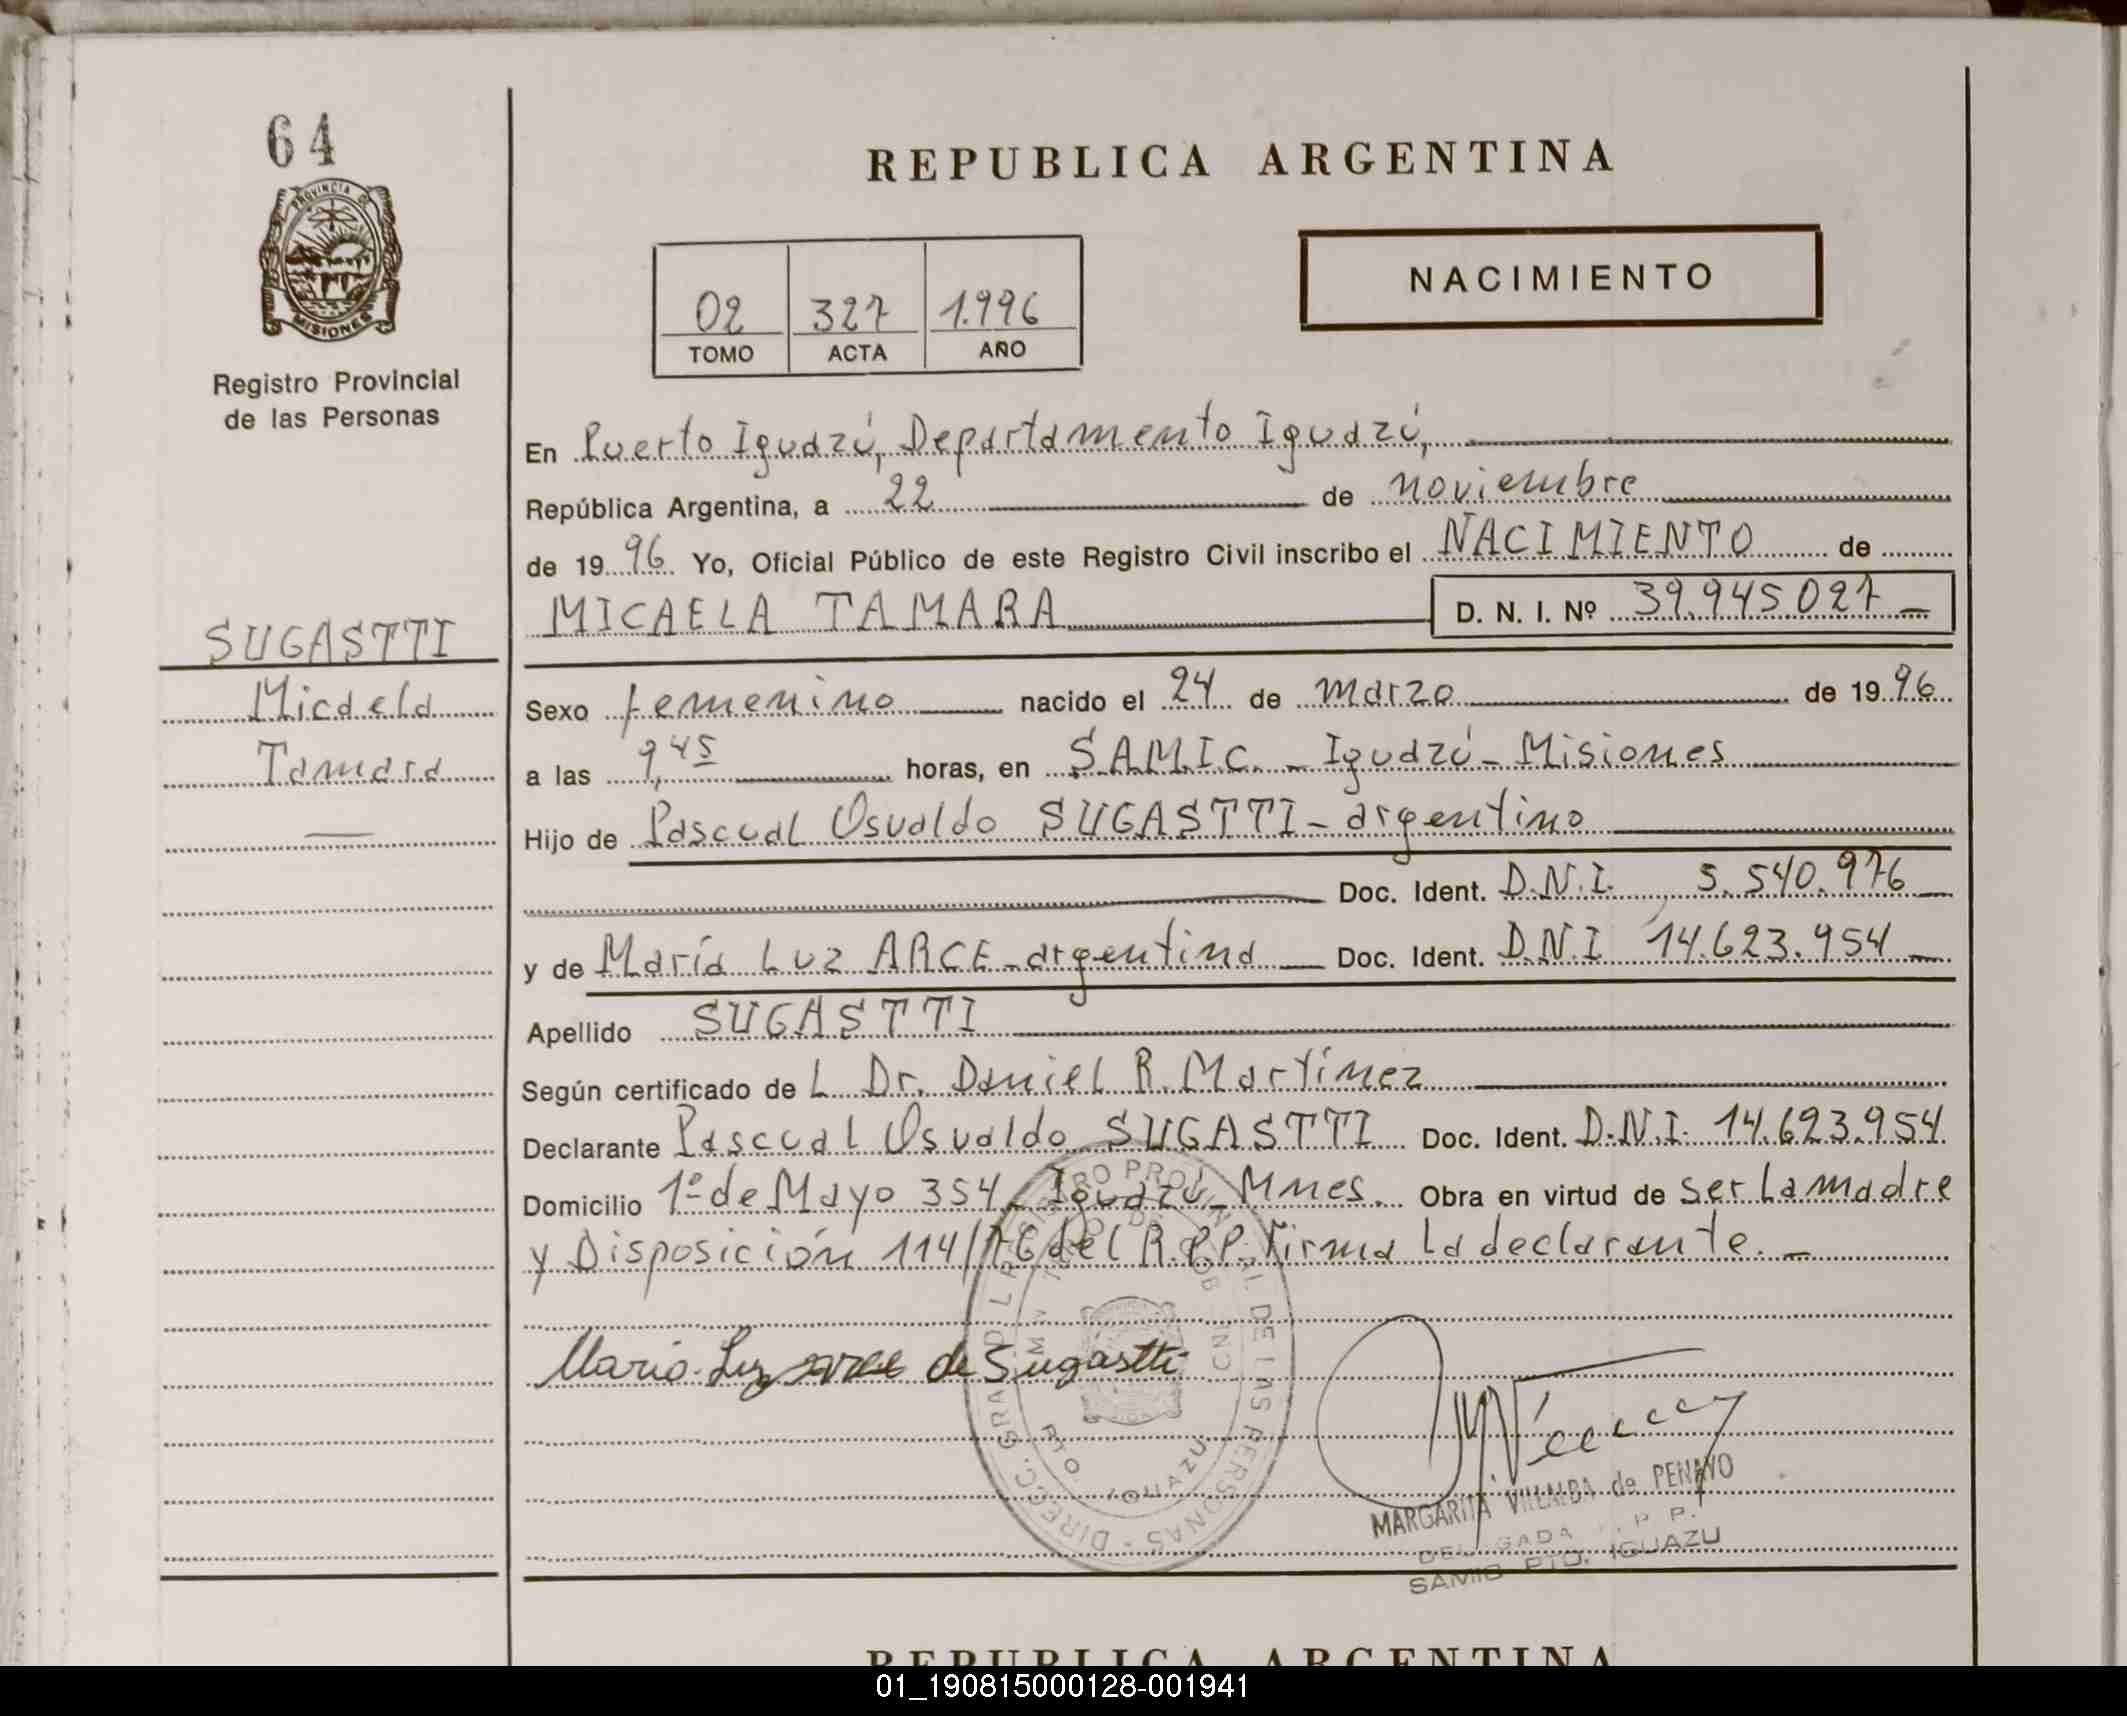 64
PROVINCIA DE
MISIONES
Registro Provincial
de las Personas
REPUBLICA ARGENTINA
NACIMIENTO
02 327 1.996
TOMO ACTA AÑO
En Puerto Iguazú, Departamento Iguazú,
República Argentina, a 22 de noviembre
de 1996 Yo, Oficial Público de este Registro Civil inscribo el NACIMIENTO de
MICAELA TAMARA D. N. I. Nº 39.945.027
SUGASTTI
Micaela
Tamara
Sexo femenino nacido el 24 de marzo de 1996
a las 9,45 horas, en S.A.M.I.C. - Iguazú - Misiones
Hijo de Pascual Osvaldo SUGASTTI - argentino
Doc. Ident. D.N.I. 5.540.976
y de María Luz ARCE - argentina Doc. Ident. D.N.I 14.623.954
Apellido SUGASTTI
Según certificado de L Dr. Daniel R. Martínez
Declarante Pascual Osvaldo SUGASTTI Doc. Ident. D.N.I. 14.623.954
Domicilio 1º de Mayo 354 - Iguazú - Mnes. Obra en virtud de ser la madre
y Disposición 114/76 del R.P.P. Firma la declarante. -
Maria Luz arce de Sugastti
MARGARITA VILLALBA de PENAYO
SAMIC PTO. IGUAZU
REPUBLICA ARGENTINA
01_190815000128-001941